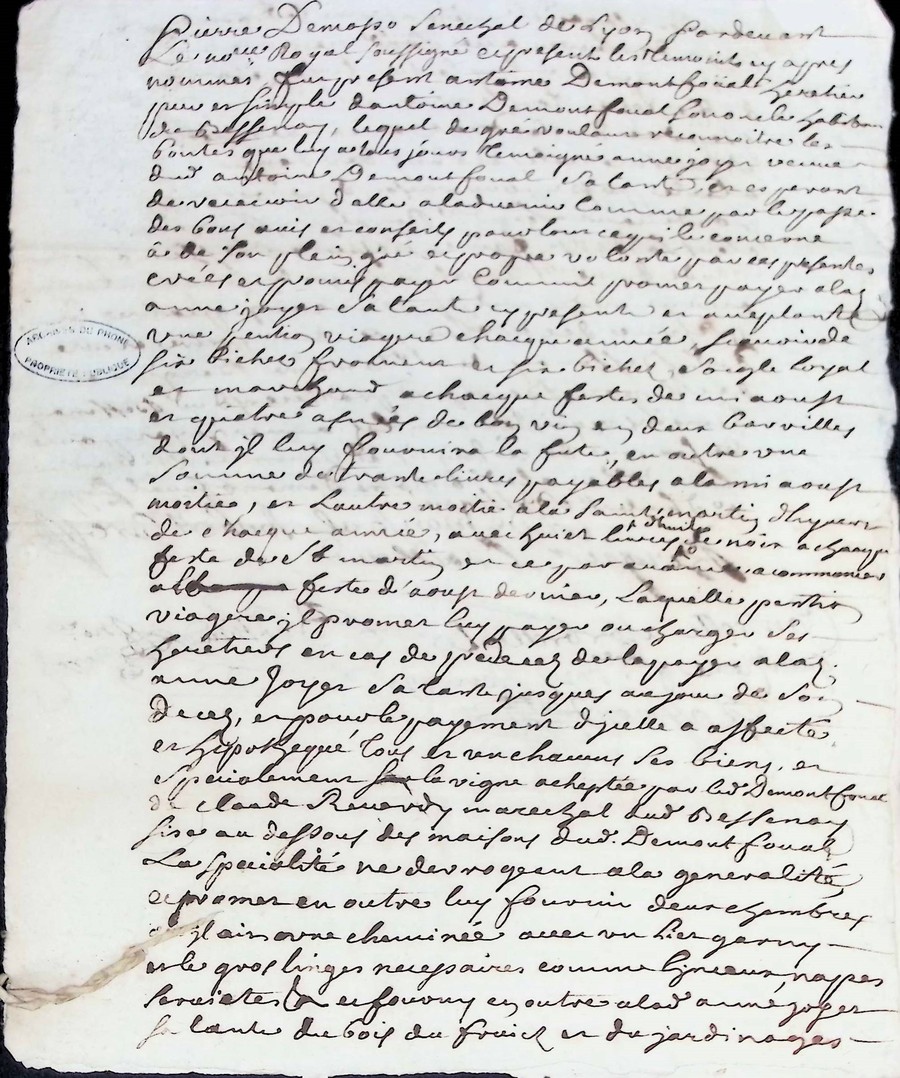 Pierre Demaso Senechal de Lyon Pardevant
Le no.re Royal soussigné et present les temoins cy apres
nommés fut present antoine Demontfouat heretier
pur et simple dantoine Demontfouat son oncle habitan
de Bessenay, lequel de gré voulant reconnoitre les
bontes que luy a tous jours temoigné anne joyer veuve
dud antoine Demontfouat Sa tante, et esperant
de recevoir d'elle a ladvenir comme par le passé
des bons avis et conseils pour tout ce qui le concerne
a de son plein gré et propre volonté par ces presentes
créés et promis payer comme promet payer a lad
anne joyer Sa tante cy presente et acceptante
une pention viagere chacque année, scavoir de
six bichets froment et six bichets soigle loyal
et marchand a chacque festes de mi aoust
et quatre asnées de bon vin en deux barrilles
dont il luy fournira la fute, en outre une
somme de trante livres payables a la mi aoust
moitié, et l'autre moitié a la Saint martin d'hyvert
de chacque année, avec huict livres d'huile de noix a chacque
feste de St martin et ce par avance a commencer
a la feste d'aoust dernier, Laquelle pention
viagere il promet luy payer ou charger ses
heretiers en cas de predecez de la payer a lad.
anne Joyer Sa tante jusques au jour de son
decez, et pour le payement d'jcelle a affecté
et hipotequé tous et un chacuns ses biens, et
specialement la vigne acheptée par led Demontfouat
de claude Reverdy marechal aud Bessenay
sise au dessous des maisons dud. Demontfouat
La specialité ne derrogeant a la generalité
et promet en outre luy fournir deux chambres
une cheminée avec un liet garny
et le gros linges necessaires comme linceux, nappes
serviettes et fourny en outre a lad anne joyer
sa tante du bois du fruict et du jardinages
ARCHIVES DU RHONE
PROPRIETE PUBLIQUE